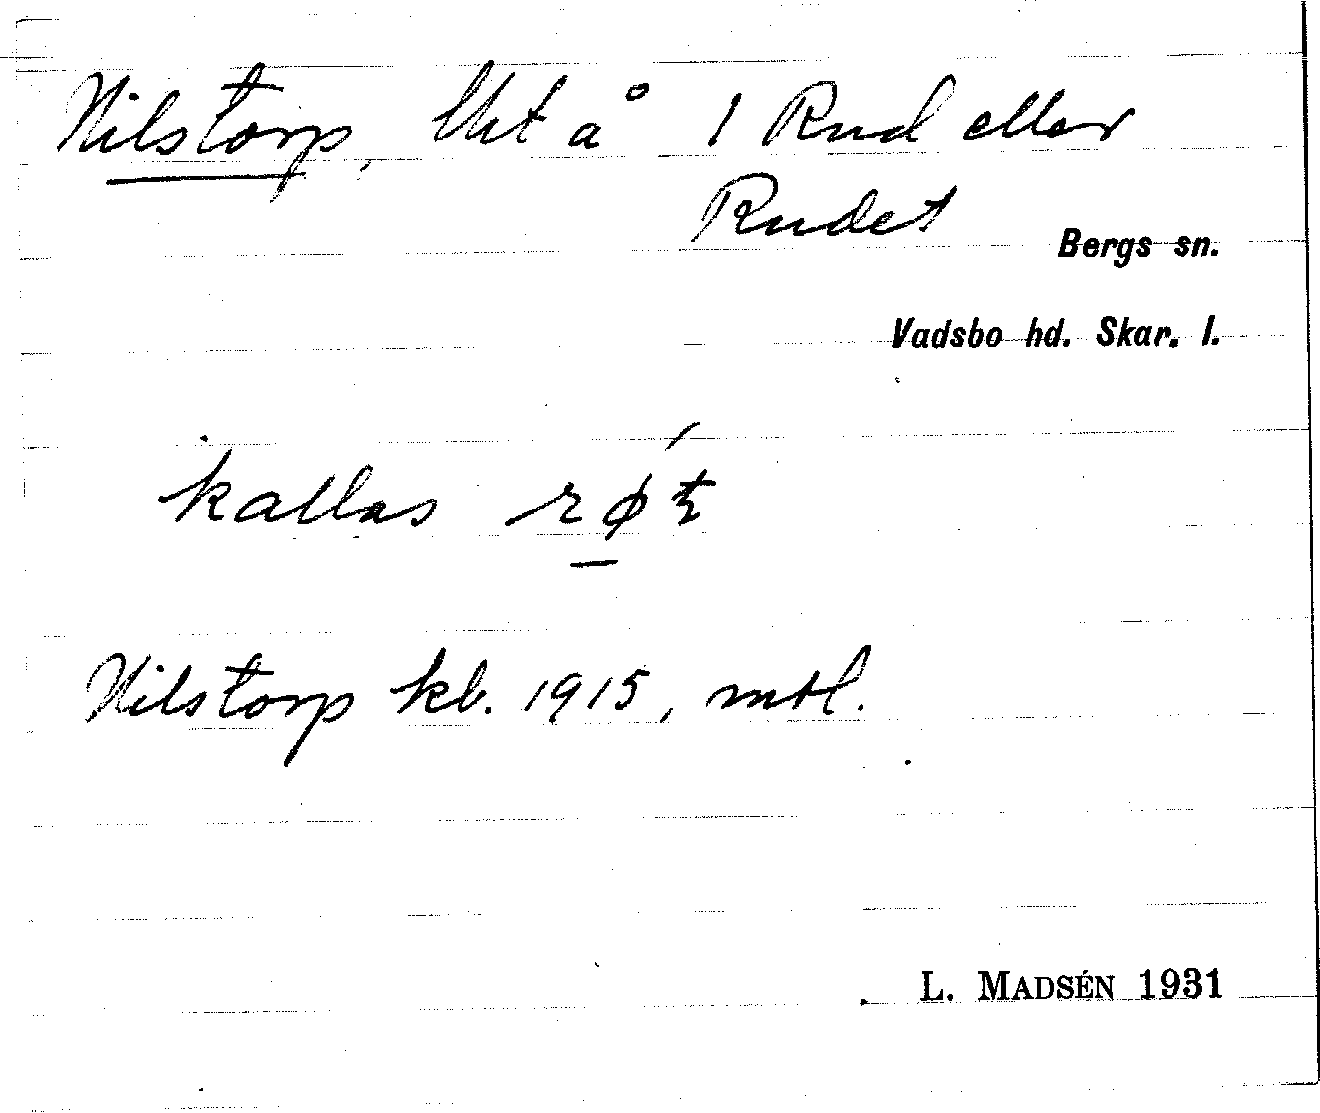 Nilstorp, lht å 1 Rud eller
Rudet
Bergs sn.
Vadsbo hd. Skar. l.
kallas
Nilstorp kb. 1915, mtl.
L. MADSÉN 1931